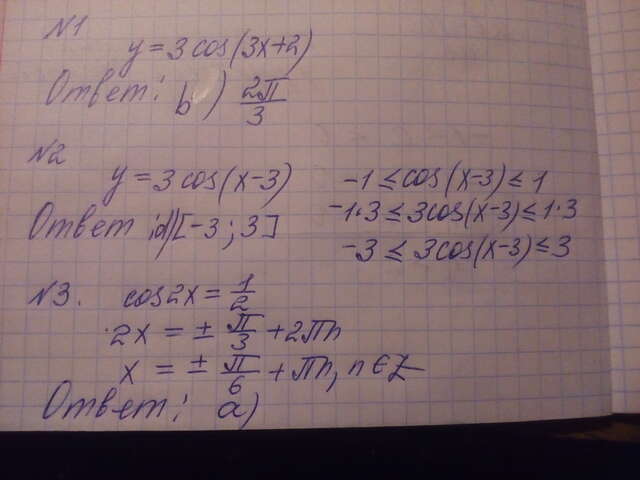 №1
y = 3 cos(3x+2)
Ответ: b) 2π/3
№2
y = 3 cos(x-3)
Ответ: d) [-3; 3]
-1 ≤ cos(x-3) ≤ 1
-1·3 ≤ 3cos(x-3) ≤ 1·3
-3 ≤ 3cos(x-3) ≤ 3
№3. cos2x = 1/2
2x = ± π/3 + 2πn
x = ± π/6 + πn, n ∈ Z
Ответ: a)